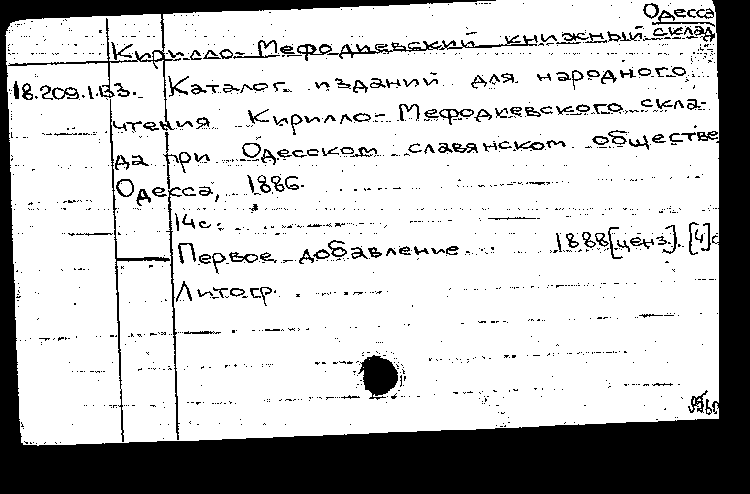 Одесса
Кирилло-Мефодиевский книжный склад
18.209.1.133. Каталог изданий для народного
чтения Кирилло-Мефодиевского скла-
да при Одесском славянском обществе
Одесса, 1886.
14с.
Первое добавление... 1888[ценз]. [4]с
Литогр.